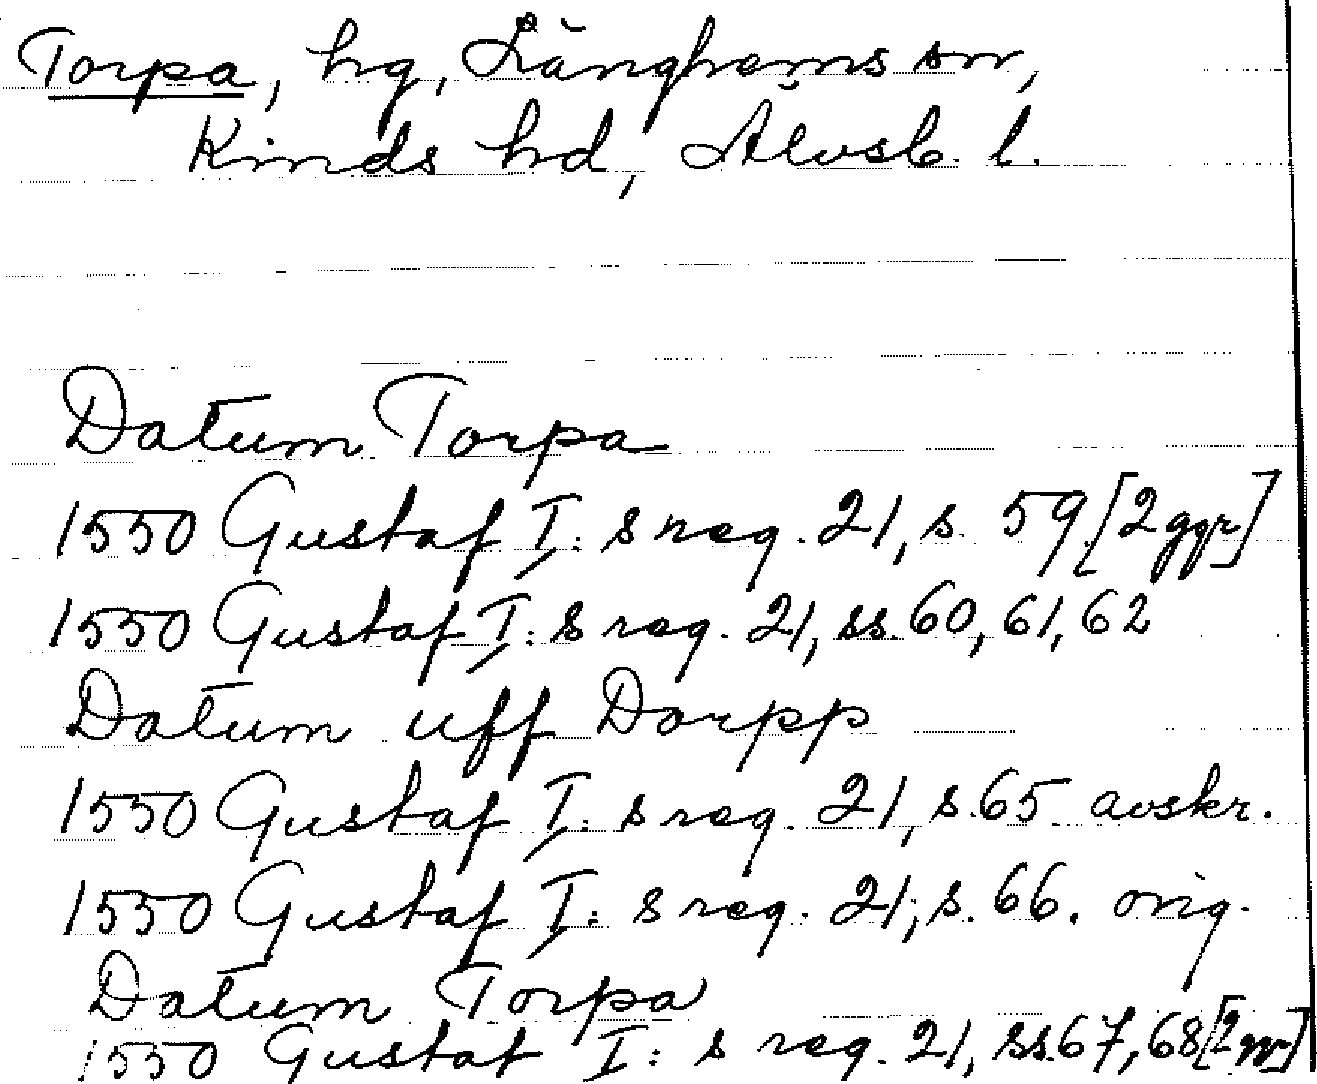 Torpa, hg, Länghems sn,
Kinds hd, Älvsb. l.
Datum Torpa
1550 Gustaf I: s reg. 21, s. 59 [2 ggr]
1550 Gustaf I: s reg. 21, ss. 60, 61, 62
Datum uff Dorpp
1550 Gustaf I: s reg. 21, s. 65 avskr.
1550 Gustaf I: s reg. 21, s. 66. orig.
Datum Torpa
1550 Gustaf I: s reg. 21, ss. 67, 68 [2 ggr]